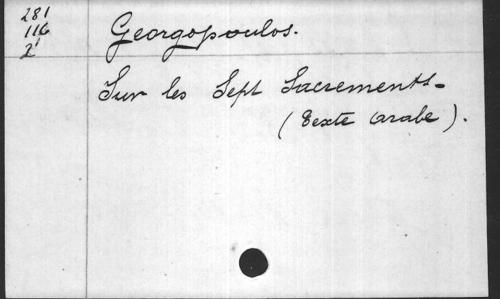 281
116
2'
Georgopoulos.
Sur les Sept Sacrements-
(Texte arabe).